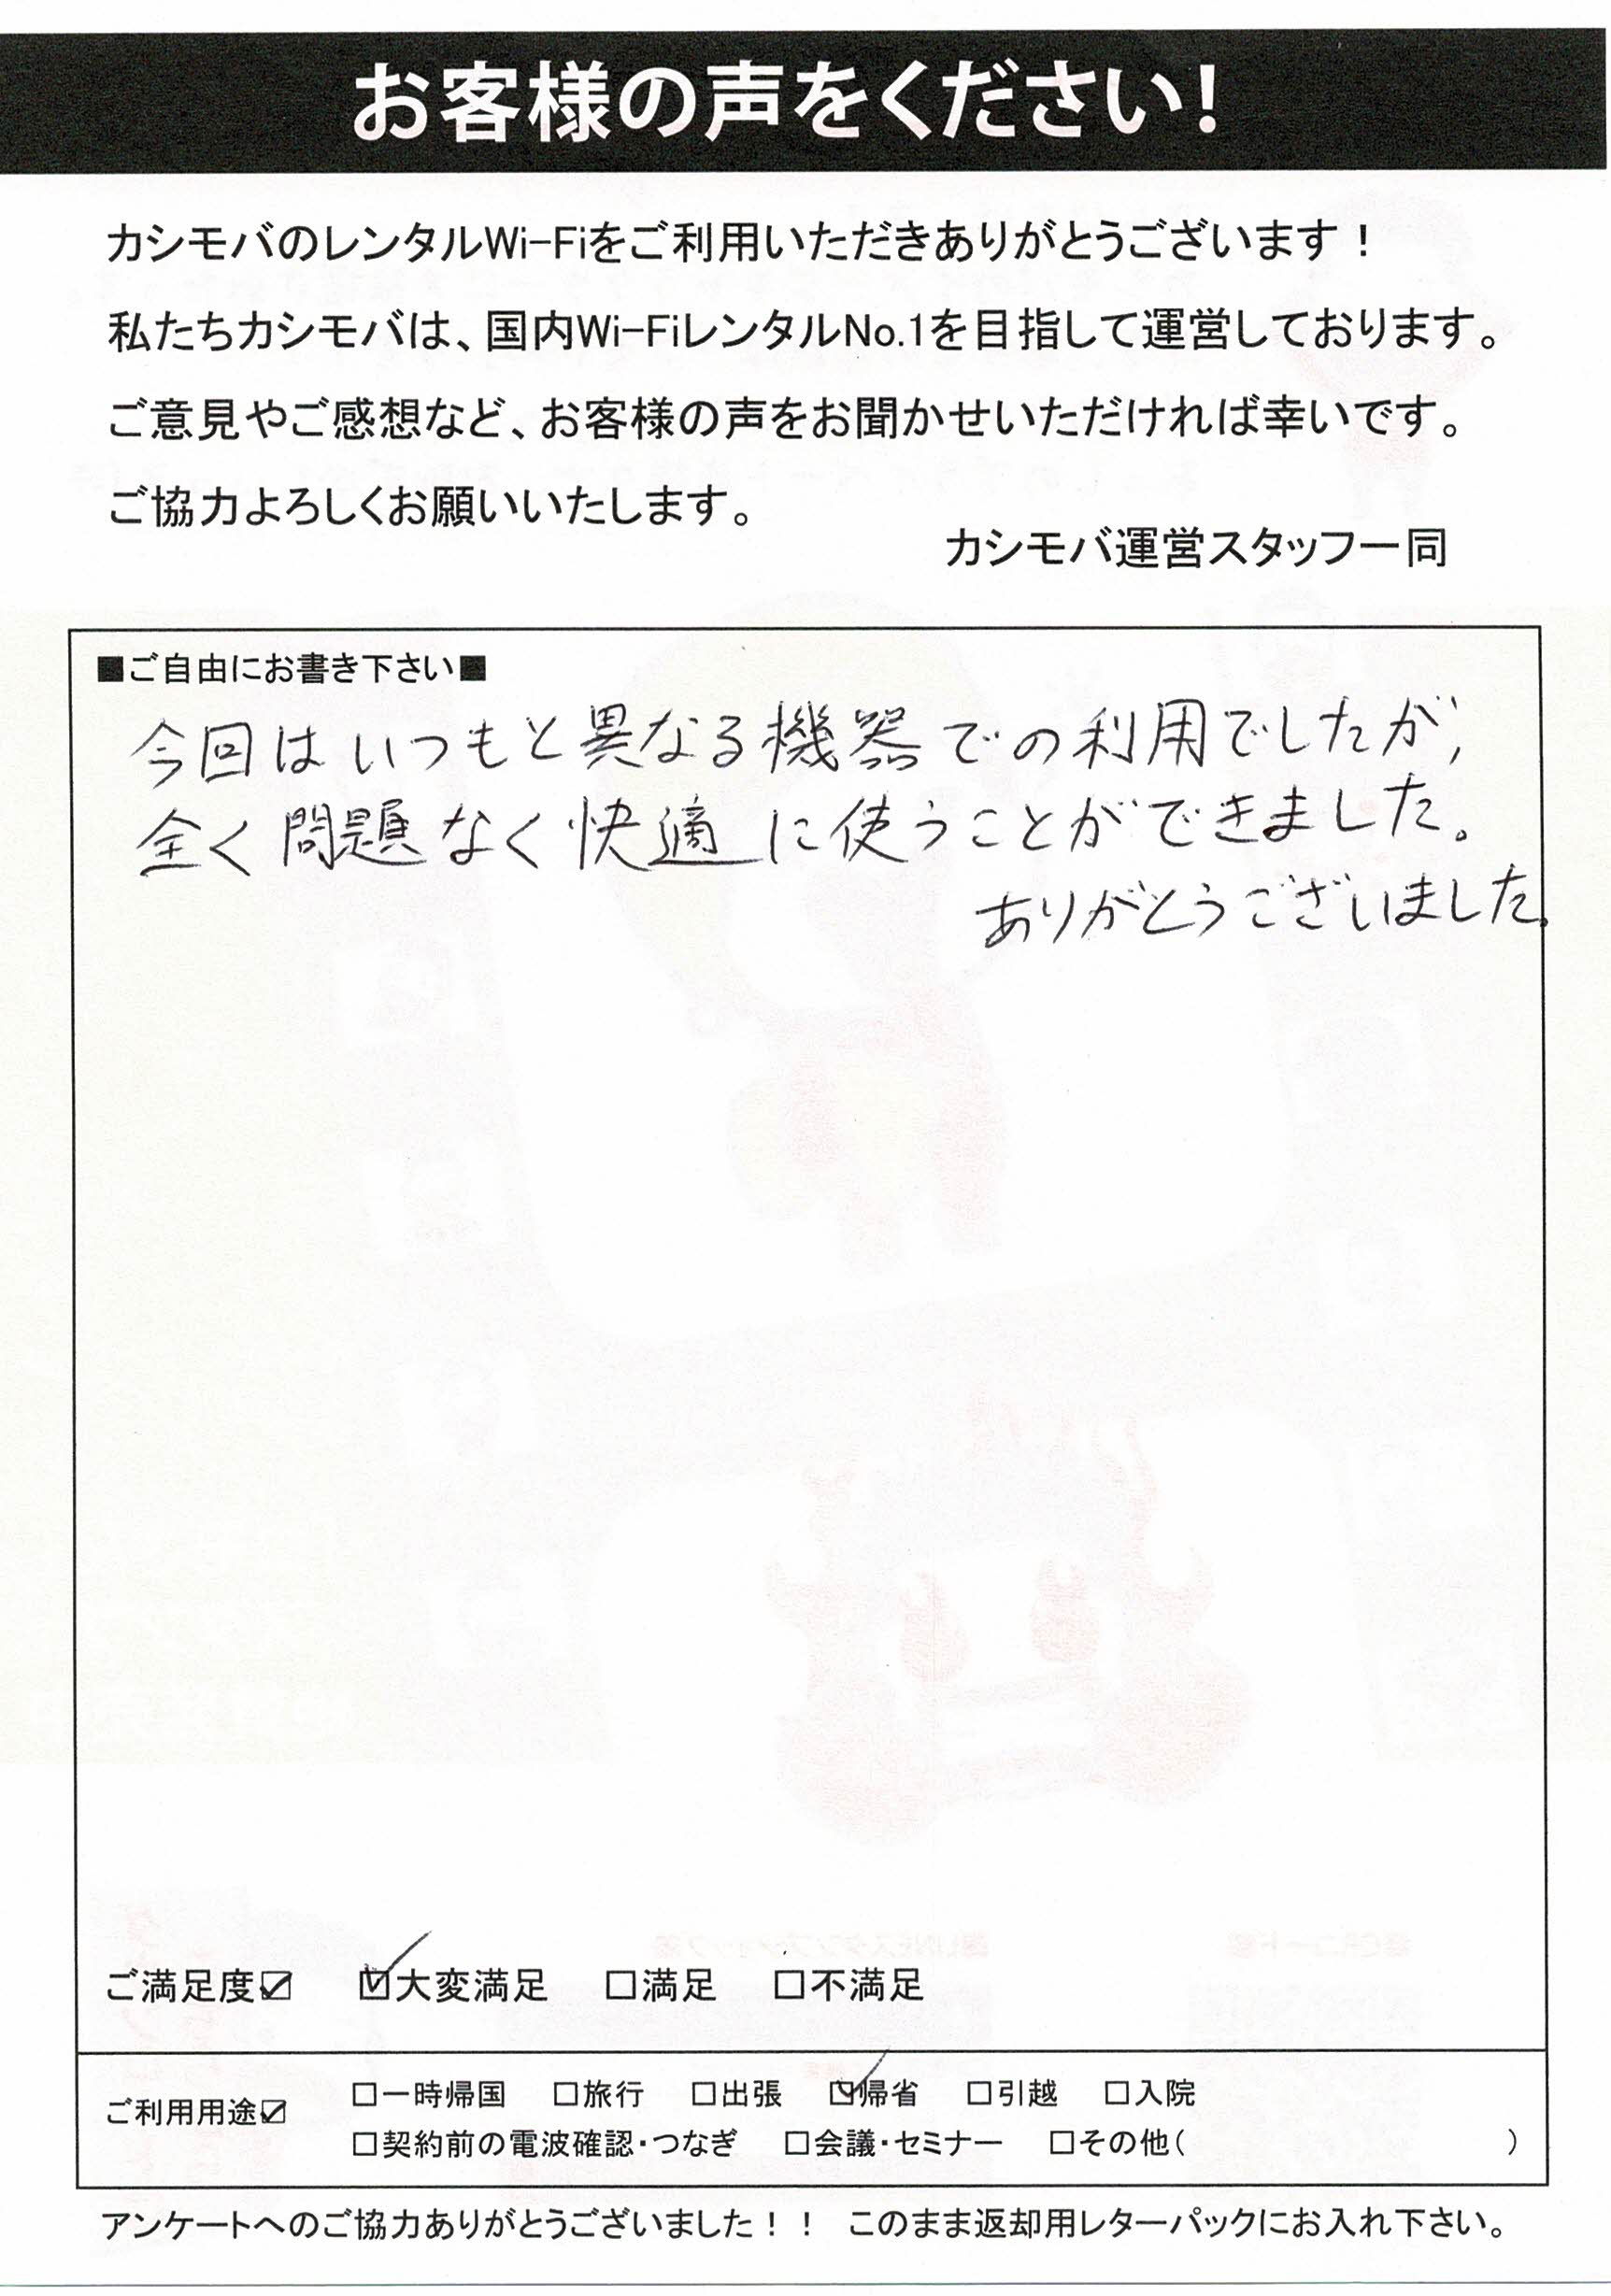 お客様の声をください!
カシモバのレンタルWi-Fiをご利用いただきありがとうございます！
私たちカシモバは、国内Wi-FiレンタルNo.1を目指して運営しております。
ご意見やご感想など、お客様の声をお聞かせいただければ幸いです。
ご協力よろしくお願いいたします。
カシモバ運営スタッフ一同
■ご自由にお書き下さい■
今回はいつもと異なる機器での利用でしたが,
全く問題なく快適に使うことができました。
ありがとうございました。
ご満足度☑ ☑大変満足 □満足 □不満足
ご利用用途☑ □一時帰国 □旅行 □出張 ☑帰省 □引越 □入院
□契約前の電波確認・つなぎ □会議・セミナー □その他( )
アンケートへのご協力ありがとうございました！！ このまま返却用レターパックにお入れ下さい。